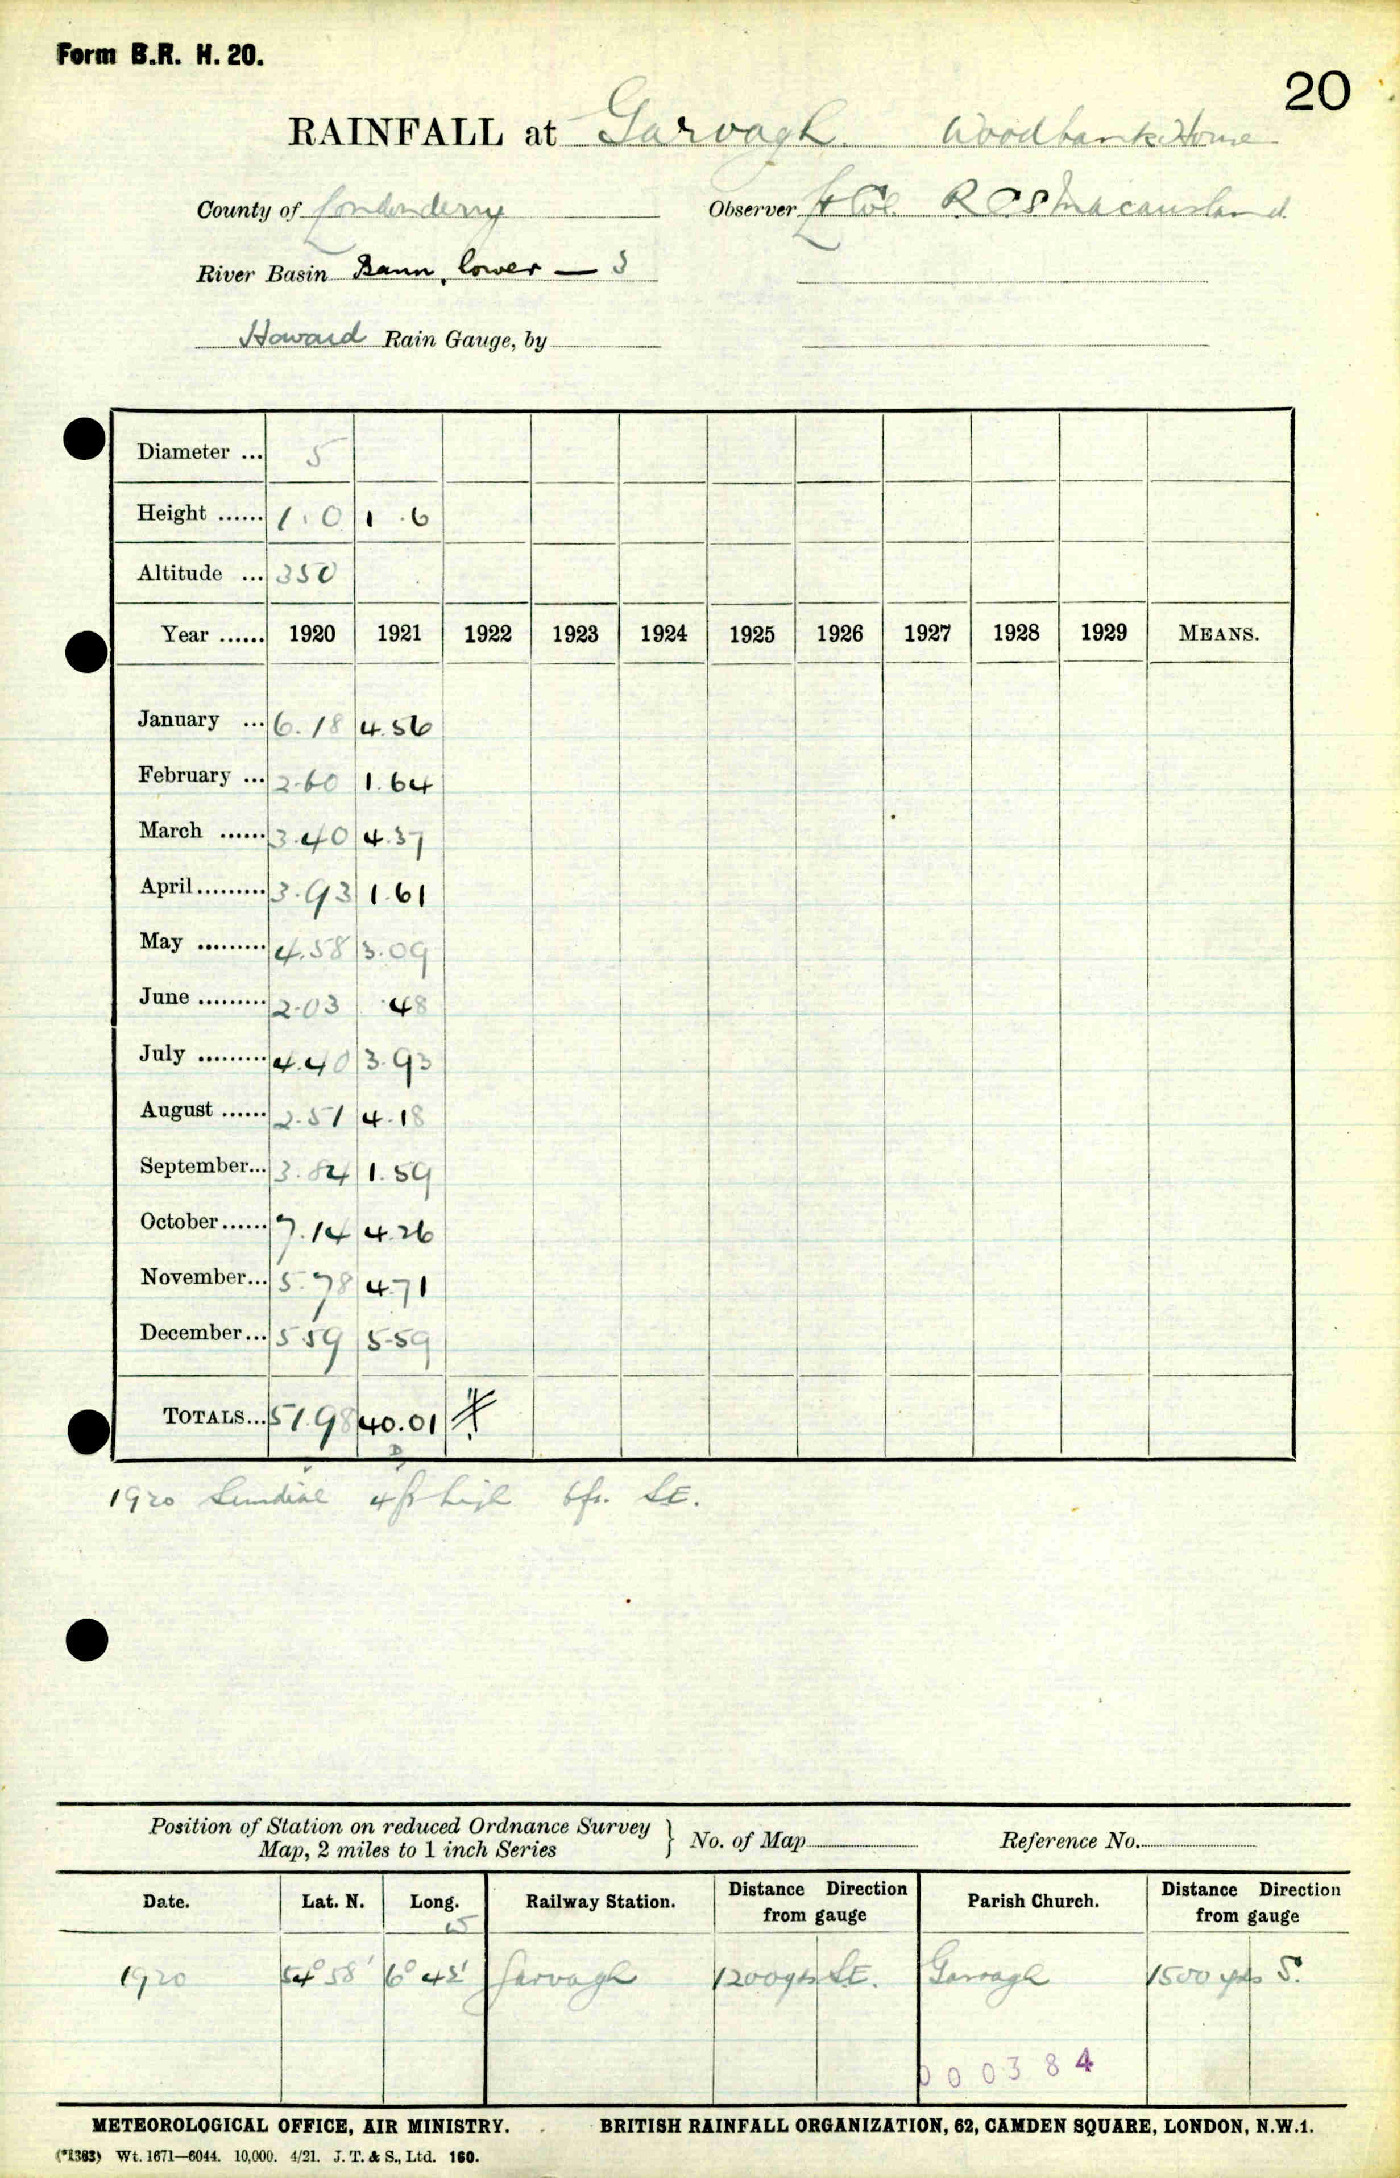 Form B.R. H. 20.
20
RAINFALL at Garvagh. Woodbank House
County of Londonderry Observer Lt Col. R C S Macausland.
River Basin Bann, lower — 3
Howard Rain Gauge, by
Diameter ... 5
Height ...... 1.0 1.6
Altitude ... 350
Year ...... 1920 1921 1922 1923 1924 1925 1926 1927 1928 1929 MEANS.
January ... 6.18 4.56
February ... 2.60 1.64
March ...... 3.40 4.37
April ......... 3.93 1.61
May ......... 4.58 3.09
June ......... 2.03 .48
July ......... 4.40 3.93
August ...... 2.51 4.18
September... 3.84 1.59
October...... 7.14 4.26
November... 5.78 4.71
December... 5.59 5.59
TOTALS... 51.98 40.01
D
1920 Sundial 4ft high 6ft. SE.
Position of Station on reduced Ordnance Survey
Map, 2 miles to 1 inch Series } No. of Map Reference No.
Date. Lat. N. Long. W Railway Station. Distance Direction from gauge Parish Church. Distance Direction from gauge
1920 54° 58' 6° 42' Garvagh 1200yds SE. Garvagh 1500 yds S.
000384
METEOROLOGICAL OFFICE, AIR MINISTRY. BRITISH RAINFALL ORGANIZATION, 62, CAMDEN SQUARE, LONDON, N.W.1.
(*1363) Wt. 1671—6044. 10,000. 4/21. J. T. & S., Ltd. 160.